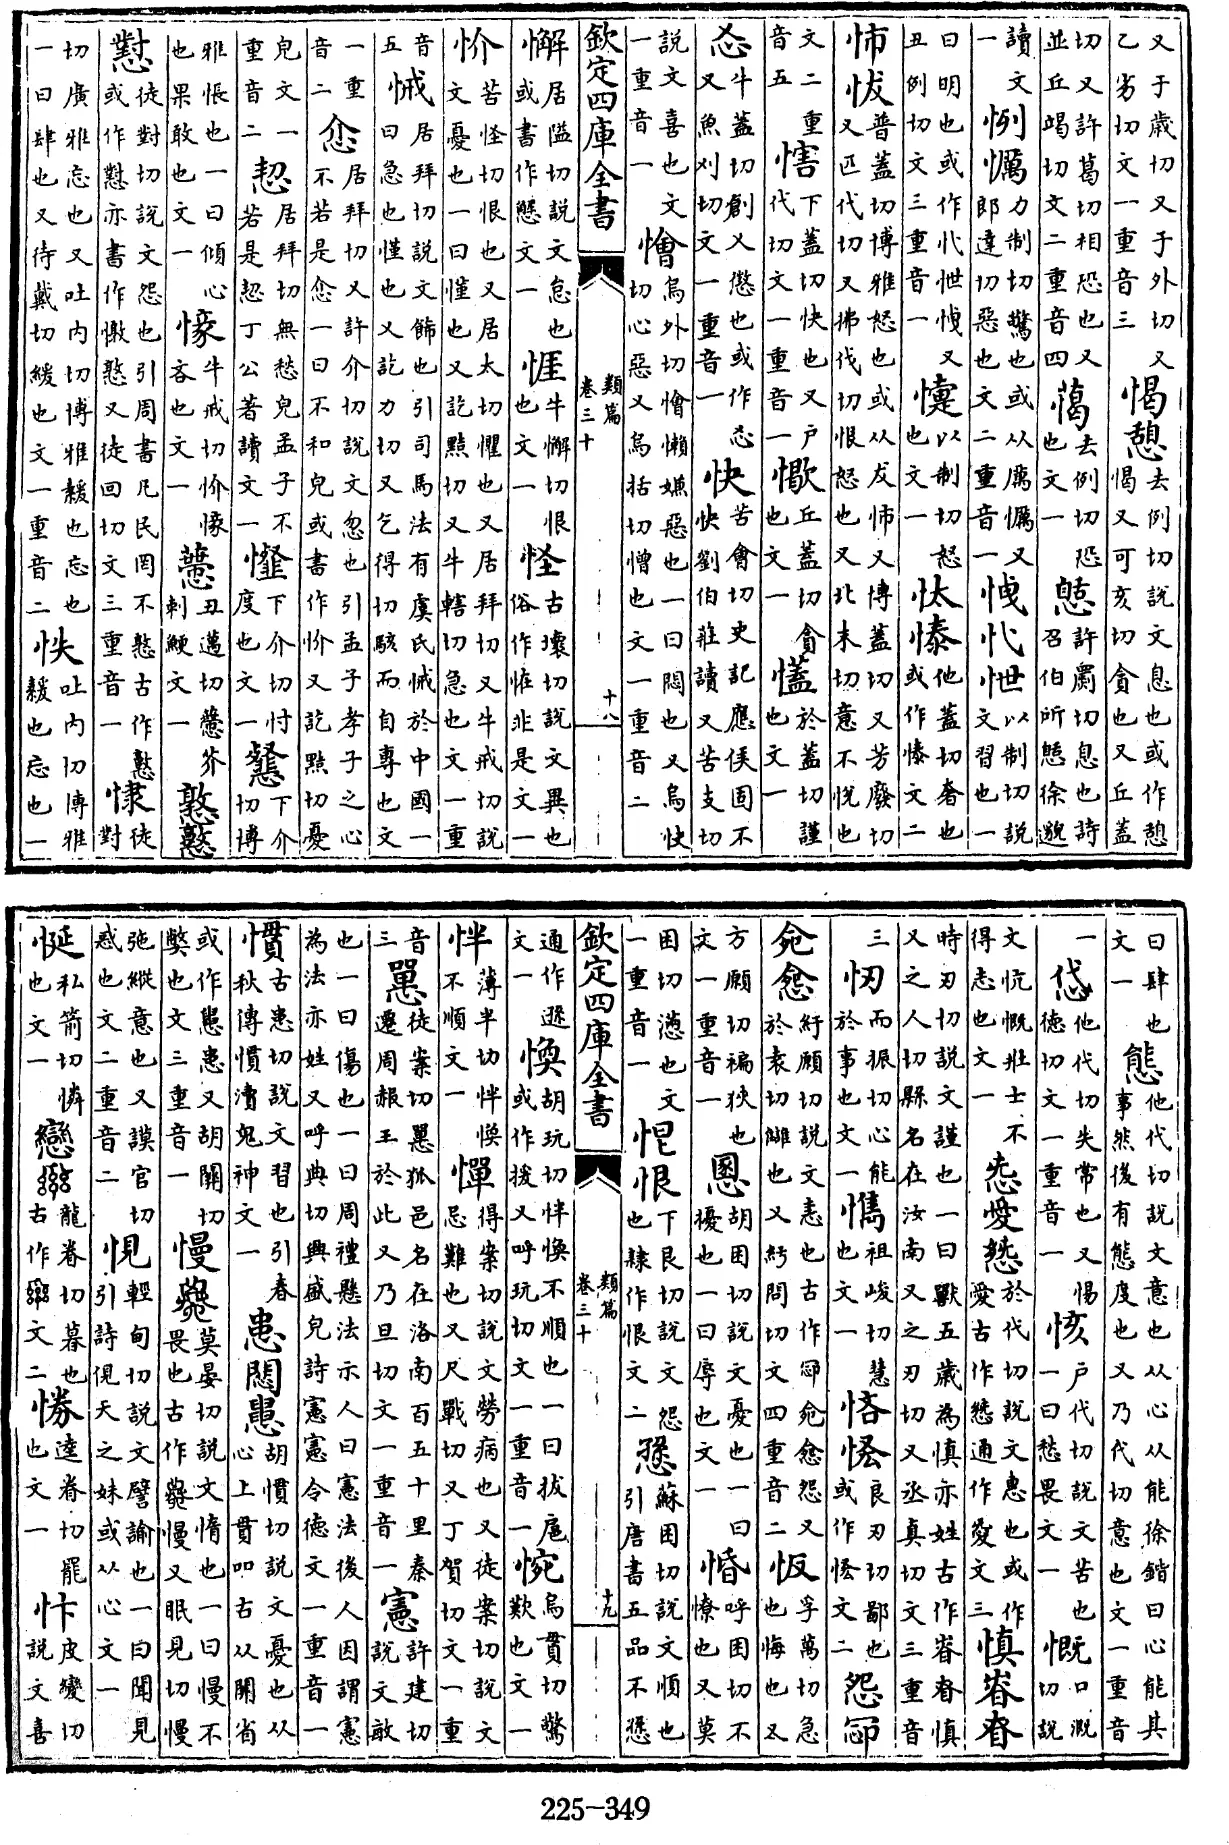 又于歳切又于外切又乙劣切文一重音三愒憩去例切說文息也或作憩愒又可亥切貪也又丘蓋
切又許葛切相恐也又並丘竭切文二重音四 去例切恐也文一憇許罽切息也詩召伯所憇徐邈
讀文一㤠 力制切驚也或从厲 又郎達切惡也文二重音一㥡忕怈以制切說文習也一
曰明也或作忕怈㥡又丑例切文三重音一 以制切怒也文一忲㥭他蓋切奢也或作㥭文二
㤄 普蓋切博雅怒也或从犮㤄又匹代切又拂代切恨怒也又北末切意不悅也博蓋切又芳廢切
文二重音五㤥下蓋切快也又戶代切文一重音一 丘蓋切貪也文一 於蓋切謹也文一
忞牛蓋切創乂懲也或作忞又魚刈切文一重音一快苦會切史記應侯固不快劉伯莊讀又苦支切
說文喜也文一重音一懀烏外切懀懶嫌惡也一曰悶也又烏快切心惡又烏括切憎也文一重音二
欽定四庫全書 類篇卷三十 十八
懈居隘切說文怠也或書作㦣文一 牛懈切恨也文一怪古壞切說文異也俗作恠非是文一
㤃苦怪切恨也又居太切懼也又居拜切又牛戒切說文憂也一曰慬也又訖黠切又牛轄切急也文一重
音五悈居拜切說文飾也引司馬法有虞氏悈於中國一曰急也慬也又訖力切又乞得切駭而自專也文
一重音二忿居拜切又許介切說文忽也引孟子孝子之心不若是忿一曰不和皃或書作㤃又訖黠切憂
皃文一重音二恝居拜切無愁皃孟子不若是恝丁公著讀文一 下介切忖度也文一 下介切博
雅悵也一曰傾心也果敢也文一 牛戒切㤃 吝也文一 丑邁切 芥刺鯁文一憝
懟徒對切說文怨也引周書凡民罔不憝古作憝或作懟亦書作憞憝又徒回切文三重音一㥆徒對
切廣雅忘也又吐内切博雅緩也忘也一曰肆也又待戴切緩也文一重音二怢吐内切博雅緩也忘也一
曰肆也文一態他代切說文意也从心从能徐鍇曰心能其事然後有態度也又乃代切意也文一重音
一㤴他代切失常也又惕德切文一重音一㤥戶代切說文苦也一曰愁畏文一慨口漑切說
文忼慨壯士不得志也文一 愛 於代切說文惠也或作愛古作㤅通作㤅文三慎昚
時刃切說文謹也一曰獸五歲為慎亦姓古作昚慎又之人切縣名在汝南又之刃切又丞真切文三重音
三㣼而振切心能於事也文一㦗祖峻切慧也文一悋恡良刃切鄙也或作恡文二怨
 㤪紆願切說文恚也古作 㤪怨又於袁切讎也又紆問切文四重音二忣孚萬切急也悔也又
方願切褊狹也文一重音一慁胡困切說文憂也一曰擾也一曰辱也文一惛呼困切不憭也又莫
困切懣也文一重音一 恨下艮切說文怨也隸作恨文二愻蘇困切說文順也引唐書五品不愻
欽定四庫全書 類篇卷三十 十九
通作遜文一愌胡玩切伴愌不順也一曰拔扈或作援又呼玩切文一重音一惋烏貫切驚歎也文一
怑薄半切怑愌不順文一憚得案切說文勞病也又徒案切說文忌難也又尺戰切又丁賀切文一重
音三㦦徒案切㦦狐邑名在洛南百五十里秦遷周赧王於此又乃旦切文一重音一憲許建切說文敏
也一曰傷也一曰周禮懸法示人曰憲法後人因謂憲為法亦姓又呼典切興盛皃詩憲憲令德文一重音一
慣古患切說文習也引春秋傳慣瀆鬼神文一患 胡慣切說文憂也从心上貫吅古从關省
或作患患又胡關切獘也文三重音一慢 莫晏切說文惰也一曰慢不畏也古作 慢又眠見切慢
弛縱意也又謨官切惑也文二重音二俔輕甸切說文譬諭也一曰聞見引詩俔天之妹或从心文一
㦓私箭切憐也文一戀 龍眷切慕也古作 文二㤲逵眷切罷也文一忭皮變切說文喜
225-349